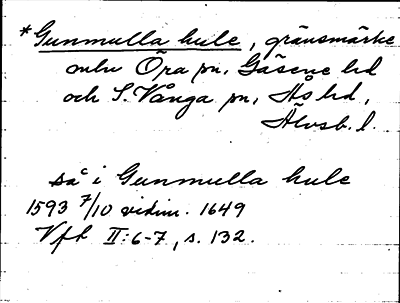 *Gunmulla hule, gränsmärke
mln Öra sn, Gäsene hd
och S. Vånga sn, Ås hd,
Älvsb. l.
så i Gunmulla hule
1593 7/10 vidim. 1649
Vft II:6-7, s. 132.